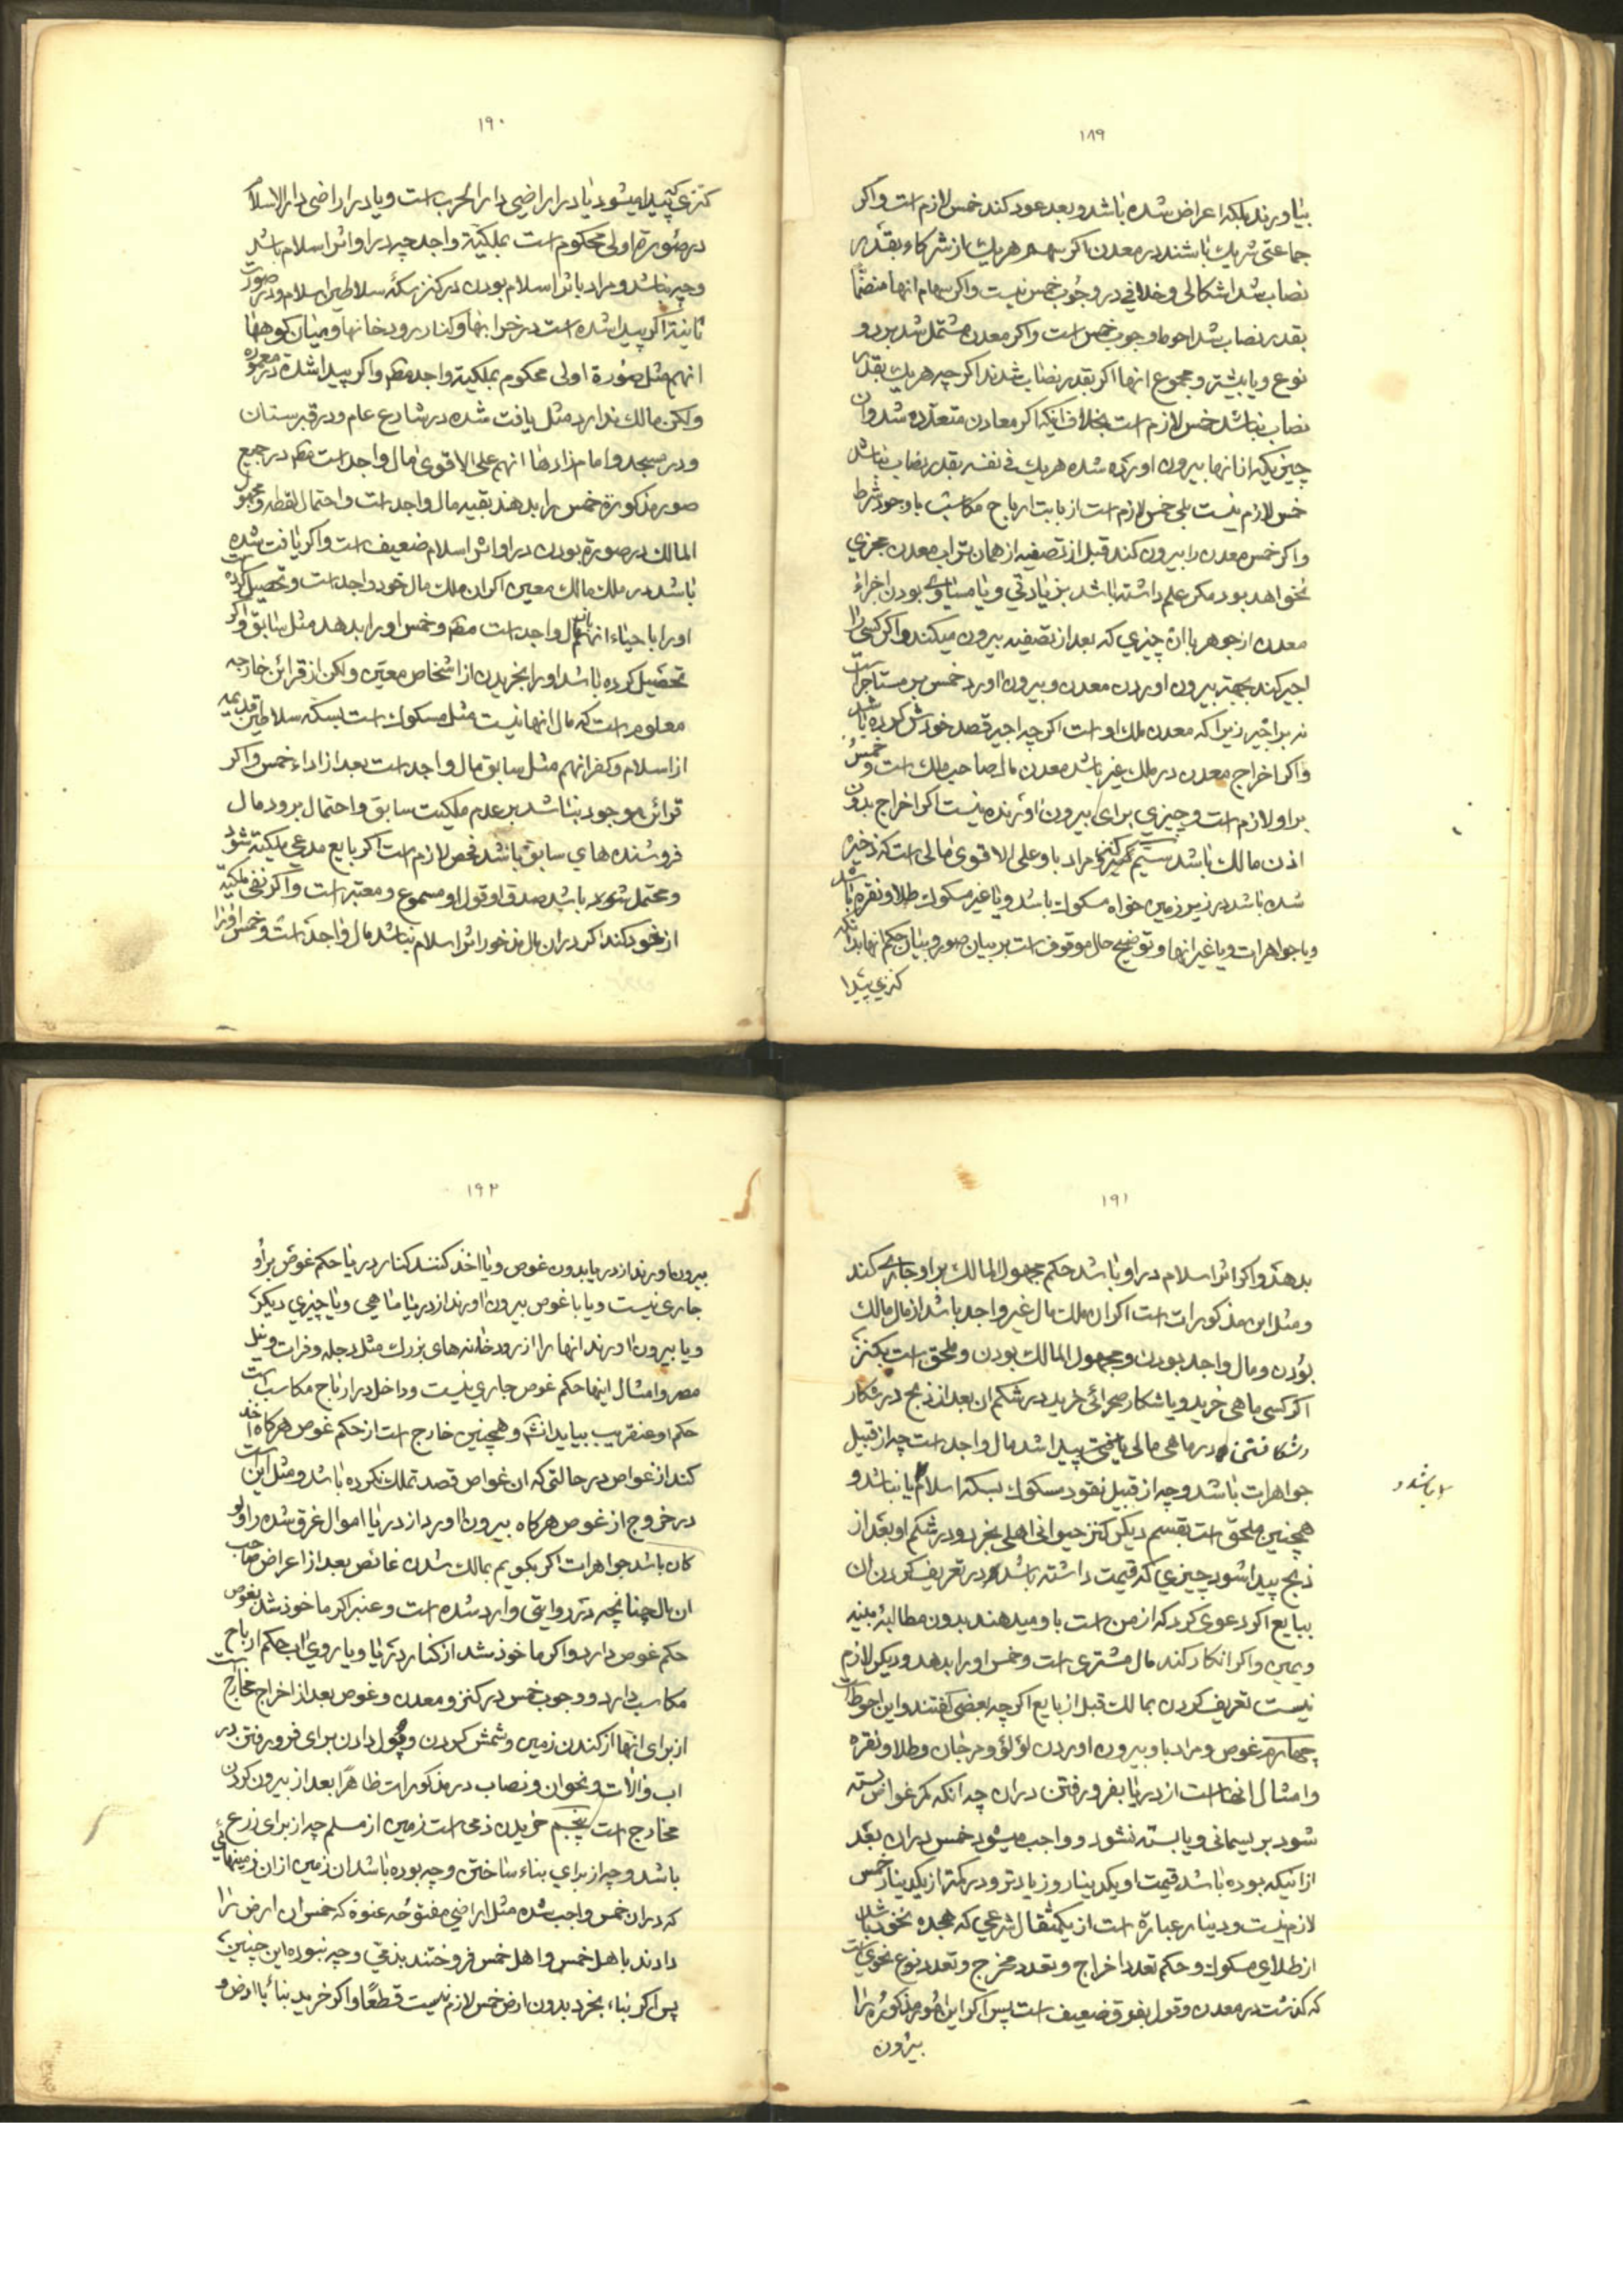 ۱۸۹
بیاورند بلکه اعراض شده باشد و بعد عود کند خمس لازم است و اگر
جماعتی شریک باشند در معدن اگر سهم هر یک از شرکاء بقدر
نصاب شد اشکالی و خلافی در وجوب خمس نیست و اگر سهام انها منضما
بقدر نصاب شد احوط وجوب خمس است و اگر معدن مشتمل شد بر دو
نوع و یا بیشتر و مجموع انها اگر بقدر نصاب شدند اگر چه هر یک بقدر
نصاب نباشد خمس لازم است بخلاف اینکه اگر معادن متعدده شد و ان
چیزیکه از انها بیرون اورده شده هر یک فی نفسه بقدر نصاب نباشد
خمس لازم نیست بلی خمس لازم است از بابت ارباح مکاسب با وجود شرط
و اگر خمس معدن را بیرون کند قبل از تصفیه از همان تراب معدن مجزی
نخواهد بود مگر علم داشته باشد بزیادتی و یا مساوی بودن اجزاء
معدن از جوهر با ان چیزی که بعد از تصفیه بیرون میکند و اگر کسی را
اجیر کند بجهة بیرون اوردن معدن و بیرون اورد خمس بر مستاجر است
نه بر اجیر زیرا که معدن ملک او است اگر چه اجیر قصد خودش کرده باشد
و اگر اخراج معدن در ملک غیر باشد معدن مال صاحب ملک است و خمس
بر او لازم است و چیزی برای بیرون اورنده نیست اگر اخراج بدون
اذن مالک باشد سیم کنز و مراد باو علی الاقوی مالی است که ذخیره
شده باشد در زیر زمین خواه مسکوک باشد و یا غیر مسکوک طلا و نقره باشد
و یا جواهرات و یا غیر انها و توضیح حال موقوف است بر بیان صور و بیان حکم انها بدانکه
کنزی پیدا
۱۹۰
کنزی که پیدا میشود یا در اراضی دار الحرب است و یا در اراضی دار الاسلام
در صورة اولی محکوم است بملکیّة واجد چه در او اثر اسلام باشد
و چه نباشد و مراد باثر اسلام بودن در کنز سکهٔ سلاطین اسلام و در صورت
ثانیة اگر پیدا شده است در خرابها و کنار رودخانها و میان کوهها
انهم مثل صورة اولی محکوم بملکیّة واجد مثم و اگر پیدا شده در معموره
ولکن مالک ندارد مثل یافت شده در شارع عام و در قبرستان
و در مسجد و امام زادها انهم علی الاقوی مال واجد است مثم در جمیع
صور مذکورة خمس را بدهند بقیه مال واجد است و احتمال لقطه و مجهول
المالک در صورة بودن در او اثر اسلام ضعیف است و اگر یافت شده
باشد در ملک مالک معین اگر ان ملک مال خود واجد است و تحصیل کرده است
او را با حیاء انهم مال واجد است مثم و خمس او را بدهد مثل سابق و اگر
تحصیل کرده باشد او را بخریدن از اشخاص معین ولکن از قرائن خارجه
معلوم است که مال انها نیست مثل مسکوک است بسکه سلاطین قدیمه
از اسلام و کفر انهم مثل سابق مال واجد است بعد از اداء خمس و اگر
قرائن موجود نباشد بر عدم ملکیت سابق و احتمال برود مال
فروشنده های سابق باشد فحص لازم است اگر بایع مدعی ملکیة شود
و محتمل باشد صدق او قول او مسموع و معتبر است و اگر نفی ملکیّة
از خود کند اگر در ان مال مذخور اثر اسلام نباشد مال واجد است و خمس او را
۱۹۱
بدهد و اگر اثر اسلام در او باشد حکم مجهول المالک بر او جاری کند
و مثل این مذکورات است اگر ان ملک مال غیر واجد باشد از مال مالک
بودن و مال واجد بودن و مجهول المالک بودن و ملحق است بکنز
اگر کسی ماهی خرید و یا شکار صحرائی خرید در شکم ان بعد از ذبح در شکار
و شکافتن در ماهی مالی یافت پیدا شد مال واجد است چه از قبیل
جواهرات باشد و چه از قبیل نقود مسکوک بسکه اسلام یا نباشد و
و باشد
همچنین ملحق است بقسم دیگر کنز حیوانی اهلی بخرد و در شکم او بعد از
ذبح پیدا شود چیزی که قیمت داشته باشد در تعریف کردن ان
ببایع اگر دعوی کرد که از من است باو میدهند بدون مطالبهٔ بینه
و یمین و اگر انکار کند مال مشتری است و خمس او را بدهد و دیگر لازم
نیست تعریف کردن بمالک قبل از بایع اگر چه بعضی گفتند و این احوط است
چهارم غوص و مراد باو بیرون اوردن لؤلؤ و مرجان و طلا و نقره
و امثال انها است از دریا بفرو رفتن در ان چه انکه کمر غواص بسته
شود بریسمانی و یا بسته نشود و واجب میشود خمس در ان بعد
از انیکه بوده باشد قیمت او یکدینار و زیادتر و در کمتر از یکدینار خمس
لازم نیست و دینار عبارة است از یکمثقال شرعی که هجده نخود باشد
از طلای مسکوک و حکم تعدد اخراج و تعدد مخرج و تعدد نوع نحوی است
که گذشت در معدن و قول بفرق ضعیف است پس اگر این امور مذکوره را
بیرون
۱۹۲
بیرون اورند از دریا بدون غوص و یا اخذ کنند کنار دریا حکم غوص بر او
جاری نیست و یا با غوص بیرون اورند از دریا ماهی و یا چیزی دیگر
و یا بیرون اورند انها را از رودخانه های بزرک مثل دجله و فرات و نیل
مصر و امثال اینها حکم غوص جاری نیست و داخل در ارباح مکاسب است
حکم او عنقریب بیاید انشم و همچنین خارج است از حکم غوص هر گاه اخذ
کند از غواص در حالتی که ان غواص قصد تملک نکرده باشد و مثل این است
در خروج از غوص هر گاه بیرون اورد از دریا اموال غرق شده را ولو
کان باشد جواهرات اگر بگویم بمالک شدن غائص بعد از اعراض صاحب
ان مال چنانچه در روایتی وارد شده است و عنبر اگر ماخوذ شد بغوص
حکم غوص دارد و اگر ماخوذ شد از کنار دریا و یا روی اب حکم ارباح
مکاسب دارد و وجوب خمس در کنز و معدن و غوص بعد از اخراج مخارج است
از برای انها از کندن زمین و شمش کردن و پول دادن برای فرو رفتن در
اب و الات و نحو ان و نصاب در مذکورات ظاهرًا بعد از بیرون کردن
مخارج است پنجم خریدن ذمی است زمین از مسلم چه از برای زرع
باشد و چه از برای بناء ساختن و چه بوده باشد ان زمین از ان زمینهائی
که در ان خمس واجب شده مثل اراضی مفتوحه عنوة که خمس ان ارض را
دادند باهل خمس و اهل خمس فروختند بذمّی و چه نبوده این چنین
پس اگر بناء بخرد بدون ارض خمس لازم نیست قطعًا و اگر خرید بناء با ارض و